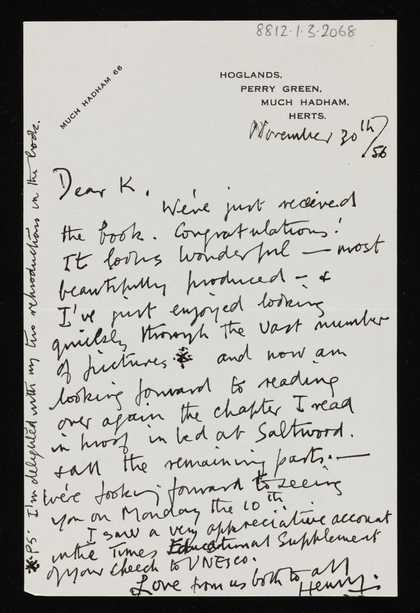 8812·1·3·2068
MUCH HADHAM 66
HOGLANDS,
PERRY GREEN,
MUCH HADHAM,
HERTS.
November 30th/56
Dear K.
We've just received
the book. Congratulations!
It looks wonderful – most
beautifully produced – &
I've just enjoyed looking
quickly through the vast number
of pictures * and now am
looking forward to reading
over again the chapter I read
in proof in bed at Saltwood.
& all the remaining parts. —
We're looking forward to seeing
you on Monday the 10th.
I saw a very appreciative account
in the Times Educational Supplement
of your speech to UNESCO.
Love from us both to all
Henry.
* PS. I'm delighted with my two reproductions in the book.